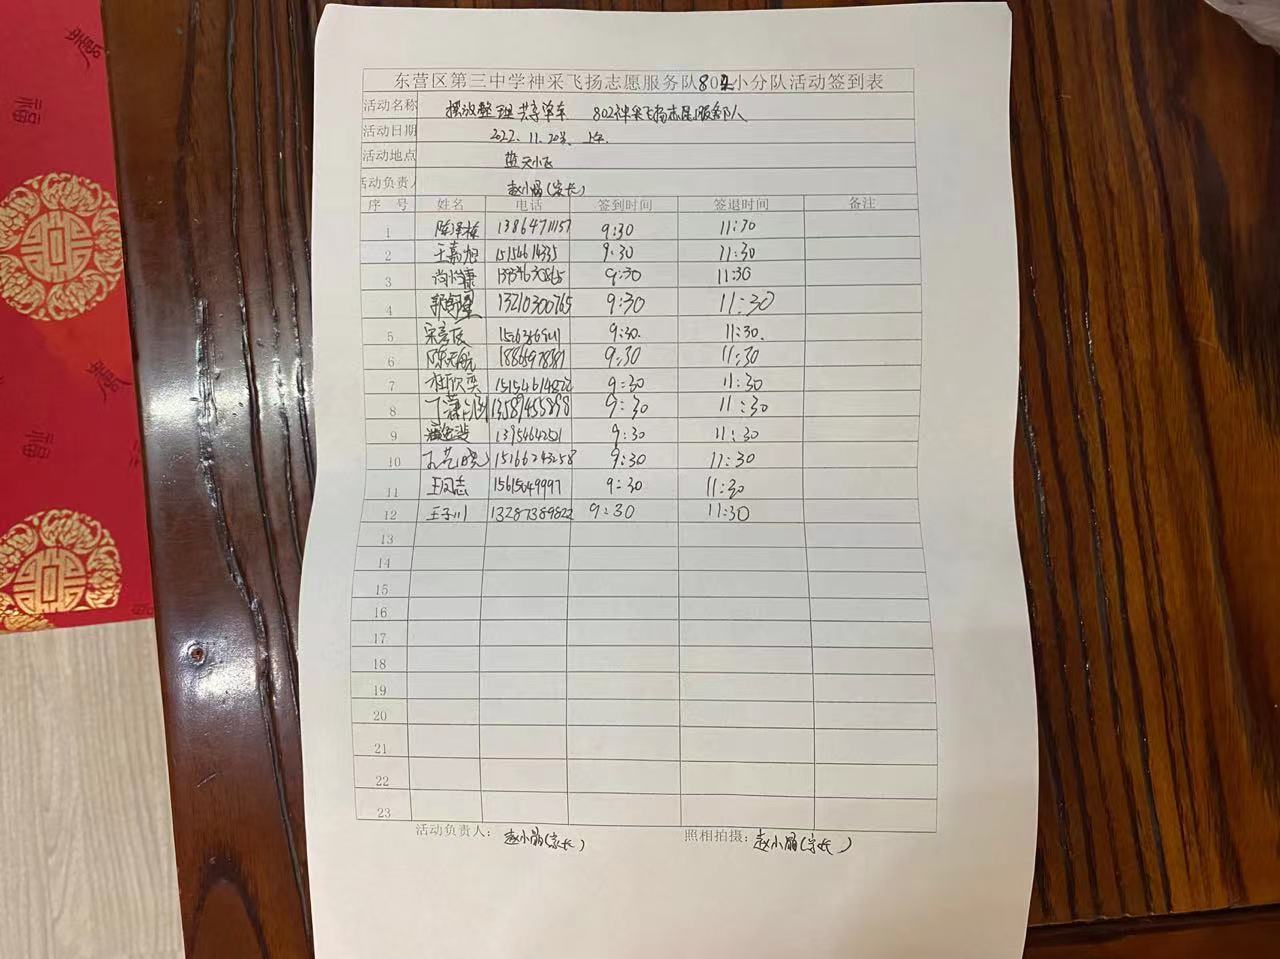 东营区第三中学神采飞扬志愿服务队802小分队活动签到表
活动名称 摆放整理共享单车 802神采飞扬志愿服务队
活动日期 2022.11.20 上午
活动地点 蓝天小飞
活动负责人 赵小娟(家长)
序号 姓名 电话 签到时间 签退时间 备注
1 13864711157 9:30 11:30
2 王嘉旭 9:30 11:30
3 9:30 11:30
4 13210300765 9:30 11:30
5 9:30. 11:30.
6 陈天航 9:30 11:30
7 杜欣奕 9:30 11:30
8 13589455898 9:30 11:30
9 9:30 11:30
10 15166243258 9:30 11:30
11 王同志 15615049997 9:30 11:30
12 王子川 13287389822 9:30 11:30
13
14
15
16
17
18
19
20
21
22
23
活动负责人: 赵小娟(家长) 照相拍摄: 赵小娟(家长)